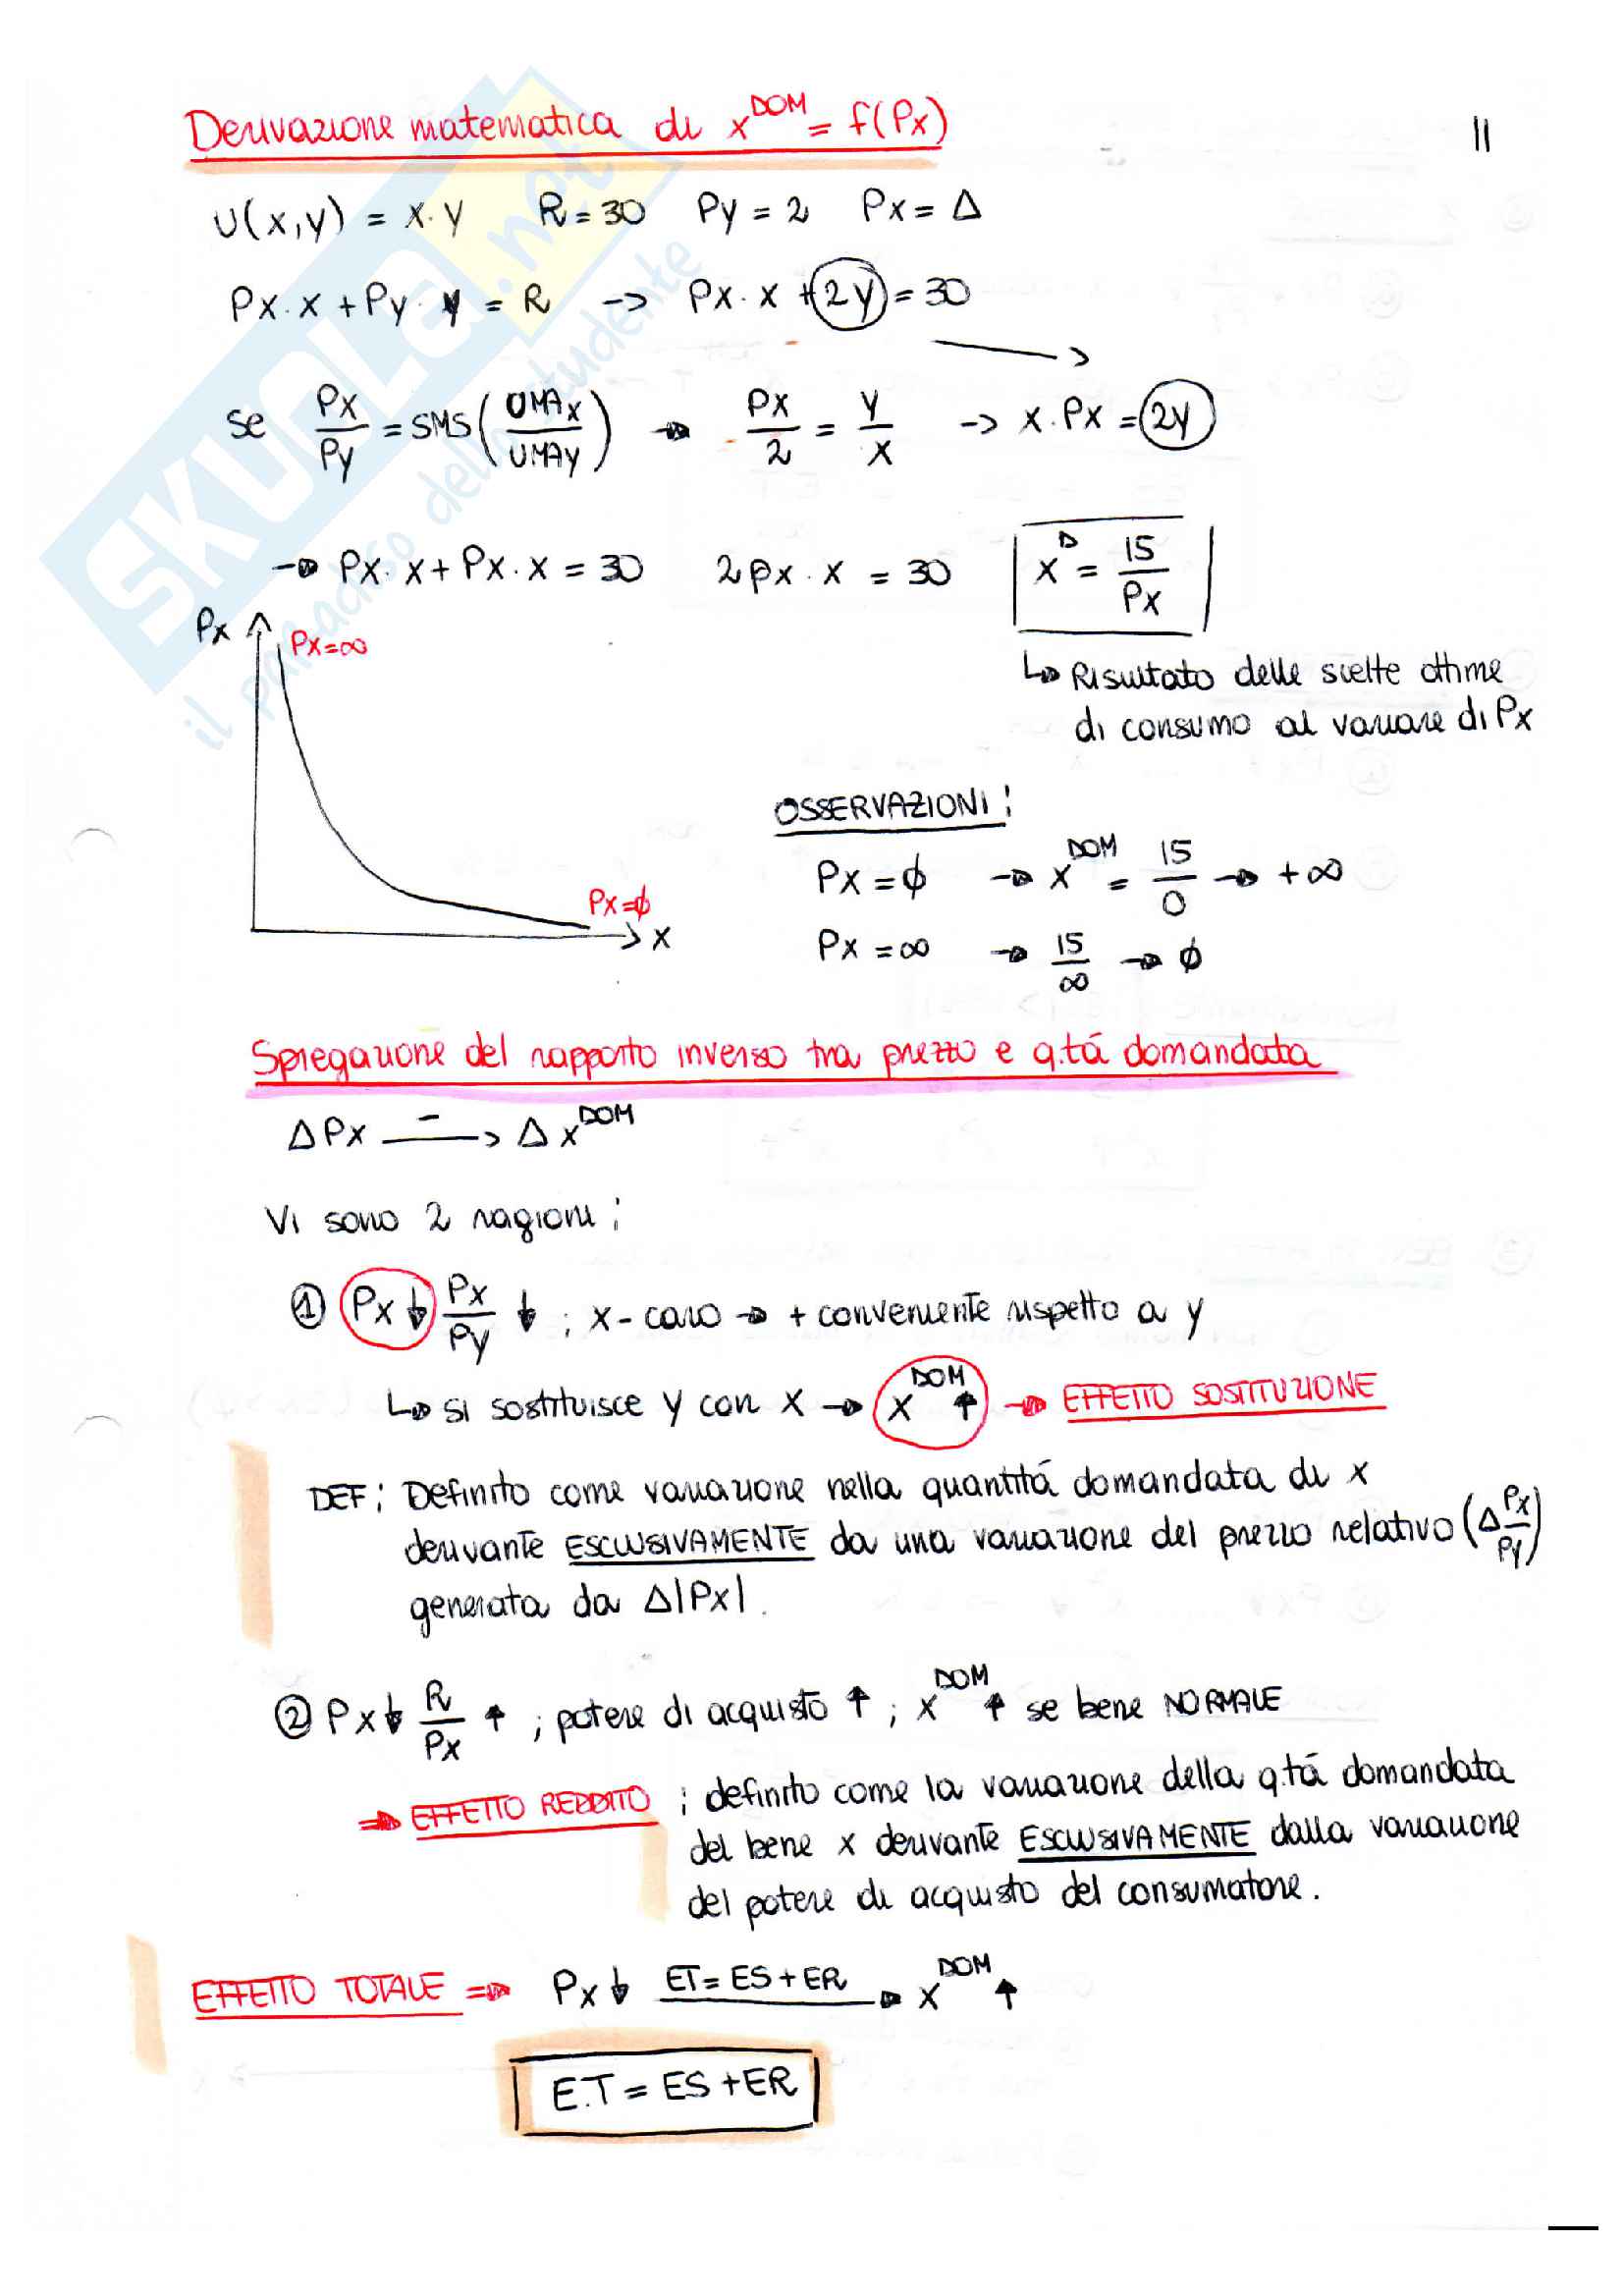 Derivazione matematica di x^DOM = f(Px)
11
U(x,y) = x·y R = 30 Py = 2 Px = Δ
Px·x + Py·y = R → Px·x + 2y = 30
se Px/Py = SMS (UMAx/UMAy) → Px/2 = y/x → x·Px = 2y
→ Px·x + Px·x = 30 2px·x = 30 x^D = 15/Px
↳ Risultato delle scelte ottime
di consumo al variare di Px
Px
Px=∞
Px=ϕ
x
OSSERVAZIONI:
Px = ϕ → x^DOM = 15/0 → +∞
Px = ∞ → 15/∞ → ϕ
Spiegazione del rapporto inverso tra prezzo e q.tá domandata
ΔPx —⁻→ Δx^DOM
Vi sono 2 ragioni:
① Px↓ Px/Py ↓ ; x - caro → + conveniente rispetto a y
↳ si sostituisce y con x → x^DOM ↑ → EFFETTO SOSTITUZIONE
DEF: Definito come variazione nella quantitá domandata di x
derivante ESCLUSIVAMENTE da una variazione del prezzo relativo (Δ Px/Py)
generata da Δ|Px|.
② Px↓ R/Px ↑ ; potere di acquisto ↑ ; x^DOM ↑ se bene NORMALE
⇒ EFFETTO REDDITO : definito come la variazione della q.tá domandata
del bene x derivante ESCLUSIVAMENTE dalla variazione
del potere di acquisto del consumatore.
EFFETTO TOTALE ⇒ Px↓ ET = ES + ER → x^DOM ↑
E.T = ES + ER
SKUOLA.net
il paradiso dello studente